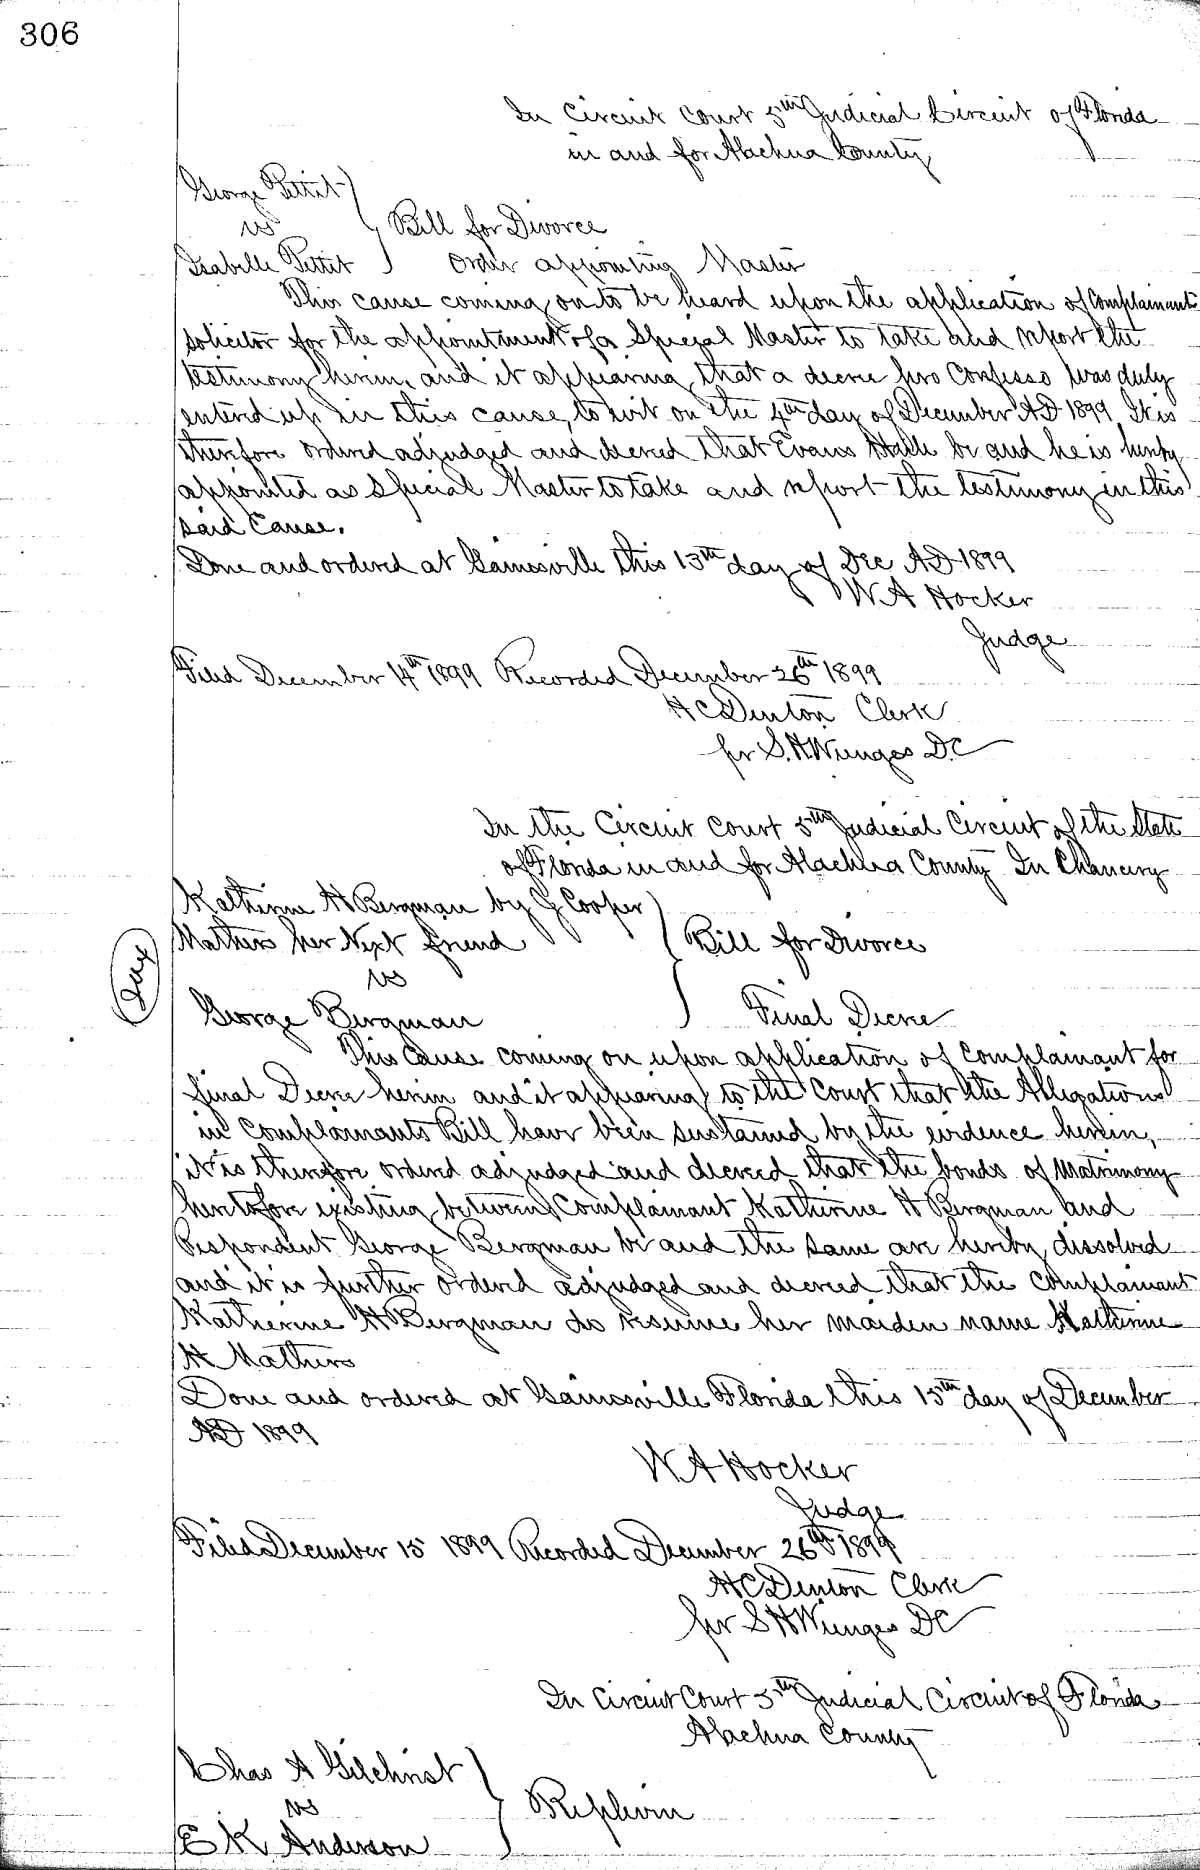 306
In Circuit Court 5th Judicial Circuit of Florida
in and for Alachua County
George Pettit
vs
Bill for Divorce
Isabelle Pettit
Order appointing Master
This cause coming on to be heard upon the application of Complainants
solicitor for the appointment of a Special Master to take and report the
testimony herein, and it appearing that a decree pro Confesso was duly
entered up in this cause, to wit on the 4th day of December AD 1899 It is
therefore ordered adjudged and decreed that Evans Haile be and he is hereby
appointed as Special Master to take and report the testimony in this
said Cause.
Done and ordered at Gainesville this 13th day of Dec AD 1899
W A Hocker
Judge
Filed December 14th 1899 Recorded December 26th 1899
H C Denton Clerk
per S. H Wienges D.C
In the Circuit Court 5th Judicial Circuit of the State
of Florida in and for Alachua County In Chancery
Katherine H Bergman by G Cooper
Mathers her Next friend
Bill for Divorce
vs
George Bergman
Final Decree
This Cause coming on upon application of Complainant for
final Decree herein and it appearing to the Court that the Allegations
in Complainants Bill have been sustained by the evidence herein,
it is therefore ordered adjudged and decreed that the bonds of Matrimony
heretofore existing between Complainant Katherine H Bergman and
Respondent George Bergman be and the same are hereby dissolved
and it is further ordered adjudged and decreed that the Complainant
Katherine H Bergman do resume her maiden name Katherine
H Mathers
Done and ordered at Gainesville Florida this 15th day of December
AD 1899
W A Hocker
Judge
Filed December 15 1899 Recorded December 26th 1899
H C Denton Clerk
per S H Wienges DC
In Circuit Court 5th Judicial Circuit of Florida
Alachua County
Chas A Gilchrist
vs
Replevin
E K Anderson